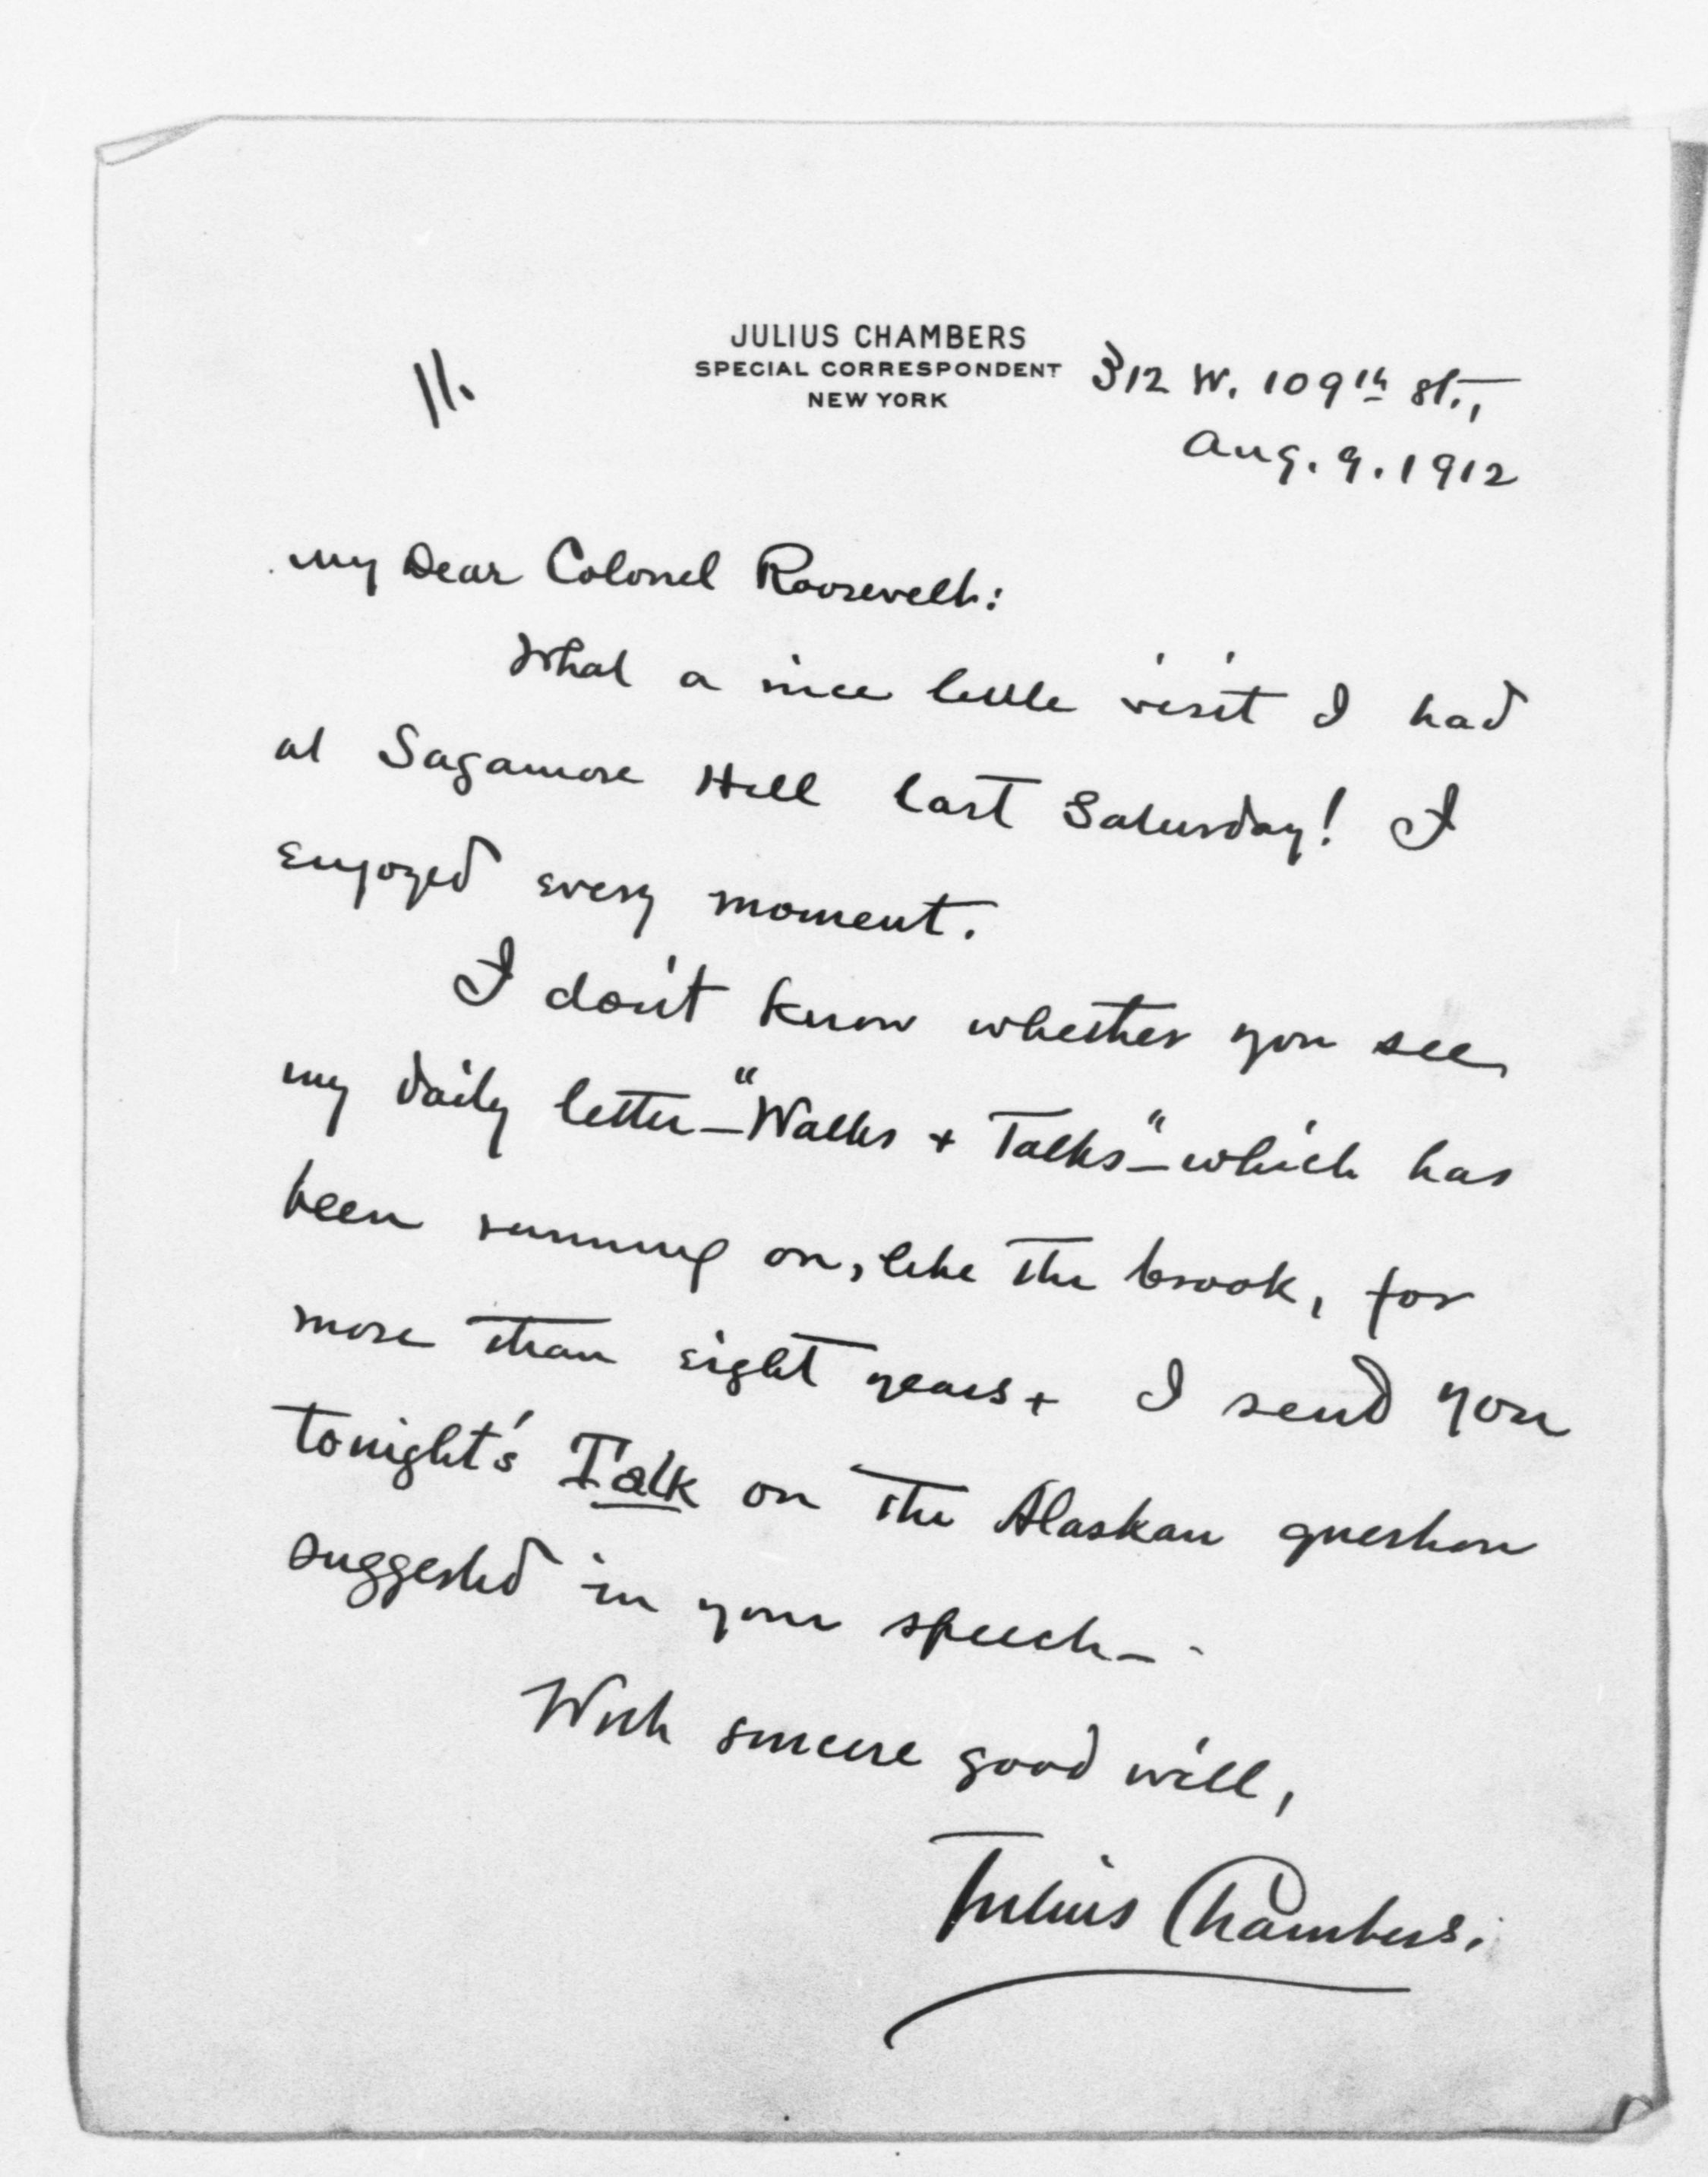 JULIUS CHAMBERS
SPECIAL CORRESPONDENT
NEW YORK
312 W. 109th St.,
Aug. 9. 1912
11.
My Dear Colonel Roosevelt:
What a nice little visit I had
at Sagamore Hill last Saturday! I
enjoyed every moment.
I don't know whether you see
my daily letter—"Walks + Talks"—which has
been running on, like the brook, for
more than eight years + I send you
tonight's Talk on the Alaskan question
suggested in your speech—
With sincere good will,
Julius Chambers.